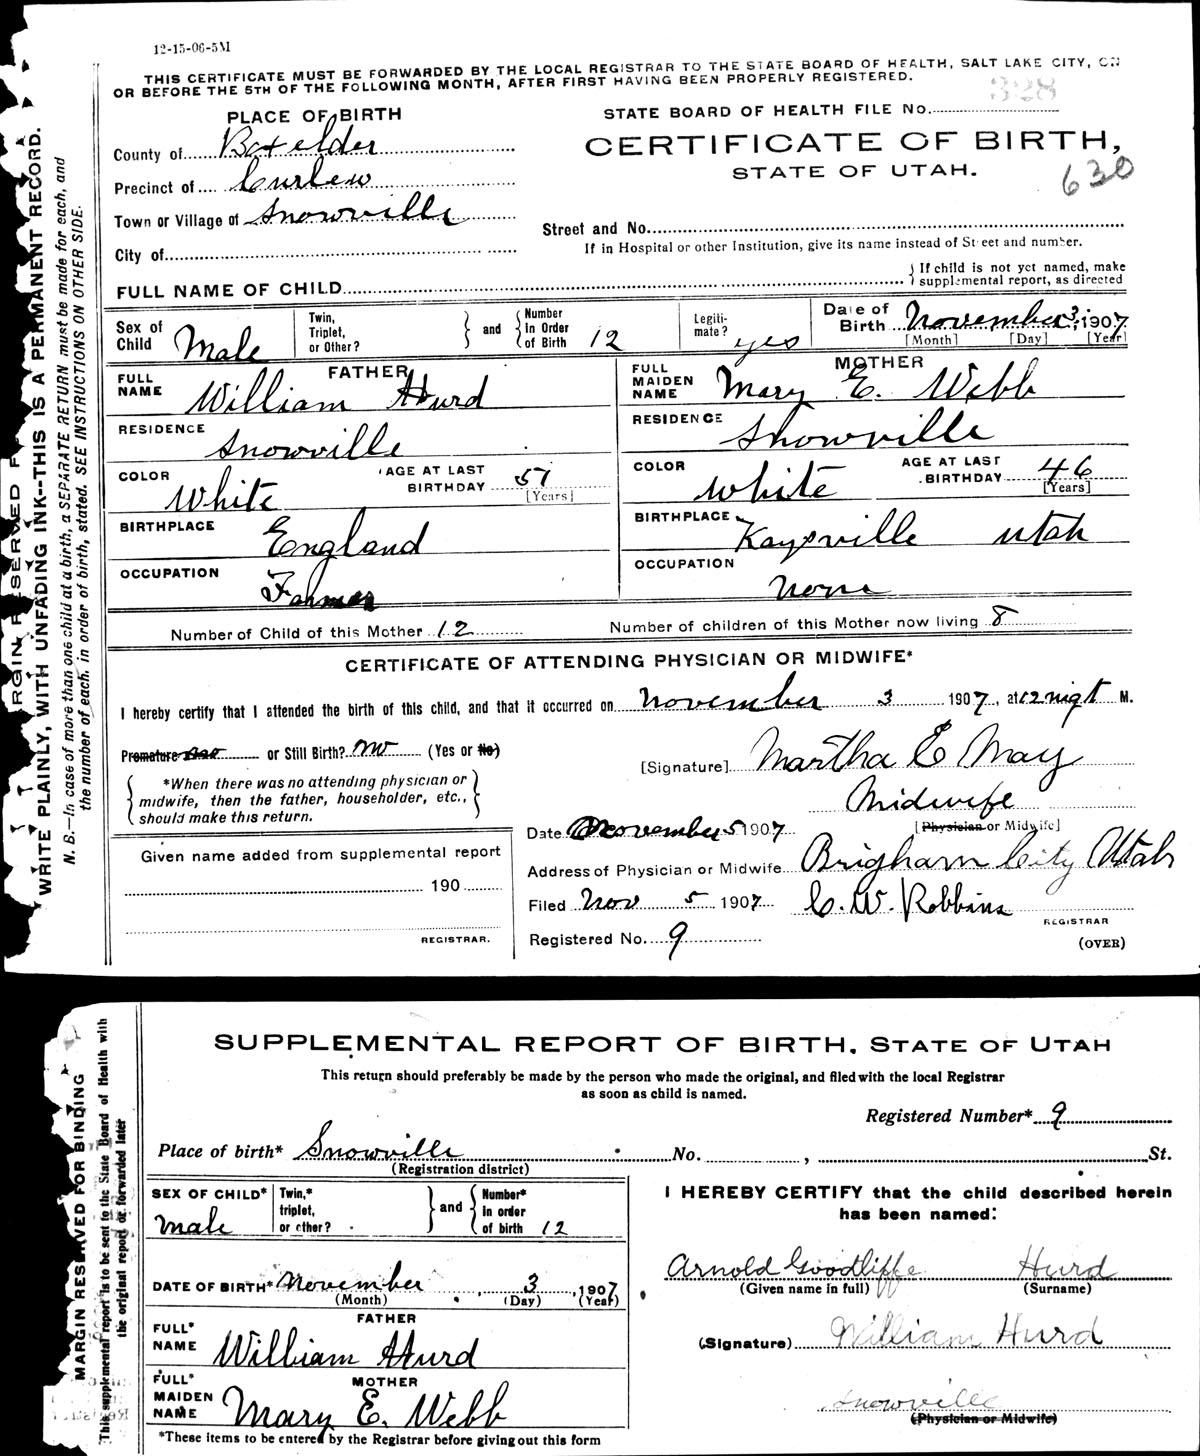 12-15-06-5M
THIS CERTIFICATE MUST BE FORWARDED BY THE LOCAL REGISTRAR TO THE STATE BOARD OF HEALTH, SALT LAKE CITY, ON
OR BEFORE THE 5TH OF THE FOLLOWING MONTH, AFTER FIRST HAVING BEEN PROPERLY REGISTERED.
328
PLACE OF BIRTH
STATE BOARD OF HEALTH FILE No.
County of Box elder
CERTIFICATE OF BIRTH,
STATE OF UTAH.
630
Precinct of Curlew
Town or Village of Snowville
Street and No.
If in Hospital or other Institution, give its name instead of Street and number.
City of
FULL NAME OF CHILD
If child is not yet named, make
supplemental report, as directed
Sex of Child Male
Twin, Triplet, or Other?
and
Number In Order of Birth 12
Legiti-mate? yes
Date of Birth November 3, 1907
[Month] [Day] [Year]
FATHER
FULL NAME William Hurd
RESIDENCE Snowville
COLOR White
AGE AT LAST BIRTHDAY 57
[Years]
BIRTHPLACE England
OCCUPATION Farmer
MOTHER
FULL MAIDEN NAME Mary E. Webb
RESIDENCE Snowville
COLOR White
AGE AT LAST BIRTHDAY 46
[Years]
BIRTHPLACE Kaysville Utah
OCCUPATION None
Number of Child of this Mother 12
Number of children of this Mother now living 8
CERTIFICATE OF ATTENDING PHYSICIAN OR MIDWIFE*
I hereby certify that I attended the birth of this child, and that it occurred on November 3 1907, at 12 nigt M.
Premature or Still Birth? no (Yes or No)
*When there was no attending physician or
midwife, then the father, householder, etc.,
should make this return.
[Signature] Martha E May
Midwife
[Physician or Midwife]
Given name added from supplemental report
190
REGISTRAR.
Date November 5 1907
Address of Physician or Midwife Brigham City Utah
Filed Nov 5 1907 C. W. Robbins
REGISTRAR
Registered No. 9
(OVER)
MARGIN RESERVED F
WRITE PLAINLY, WITH UNFADING INK--THIS IS A PERMANENT RECORD.
N. B.—In case of more than one child at a birth, a SEPARATE RETURN must be made for each, and
the number of each, in order of birth, stated. SEE INSTRUCTIONS ON OTHER SIDE.
SUPPLEMENTAL REPORT OF BIRTH, STATE OF UTAH
This return should preferably be made by the person who made the original, and filed with the local Registrar
as soon as child is named.
Registered Number* 9
Place of birth* Snowville No. , St.
(Registration district)
SEX OF CHILD* Male
Twin,* triplet, or other?
and
Number* in order of birth 12
I HEREBY CERTIFY that the child described herein
has been named:
DATE OF BIRTH* November 3, 1907
(Month) (Day) (Year)
Arnold Goodliffe Hurd
(Given name in full) (Surname)
FATHER
FULL* NAME William Hurd
(Signature) William Hurd
MOTHER
FULL* MAIDEN NAME Mary E. Webb
Snowville
(Physician or Midwife)
*These items to be entered by the Registrar before giving out this form
MARGIN RESERVED FOR BINDING
This supplemental report is to be sent to the State Board of Health with
the original report or forwarded later